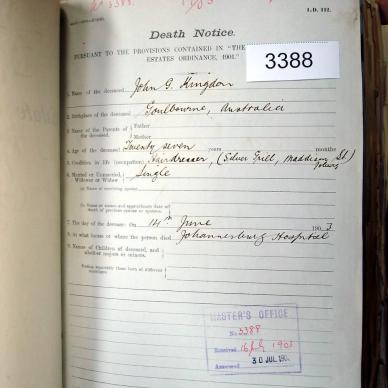 3388.
1903
I.D. 112.
Death Notice.
PURSUANT TO THE PROVISIONS CONTAINED IN "THE
ESTATES ORDINANCE, 1901."
3388
1. Name of the deceased John G. Kingdon
2. Birthplace of the deceased Goulbourne, Australia
3. Name of the Parents of the deceased. Father
Mother
4. Age of the deceased Twenty seven years months
5. Condition in life (occupation) Hairdresser, (Silver Grill, Maddison St) Joburg
6. Married or Unmarried, Single
Widower or Widow
(a) Name of surviving spouse
(b) Name or names and approximate date of
death of previous spouse or spouses
7. The day of the decease: On 14th June 1903
8. At what house or where the person died Johannesburg Hospital
9. Names of Children of deceased, and
whether majors or minors.
MASTER'S OFFICE
No 3388
Received 16 July 1903
30 JUL 190